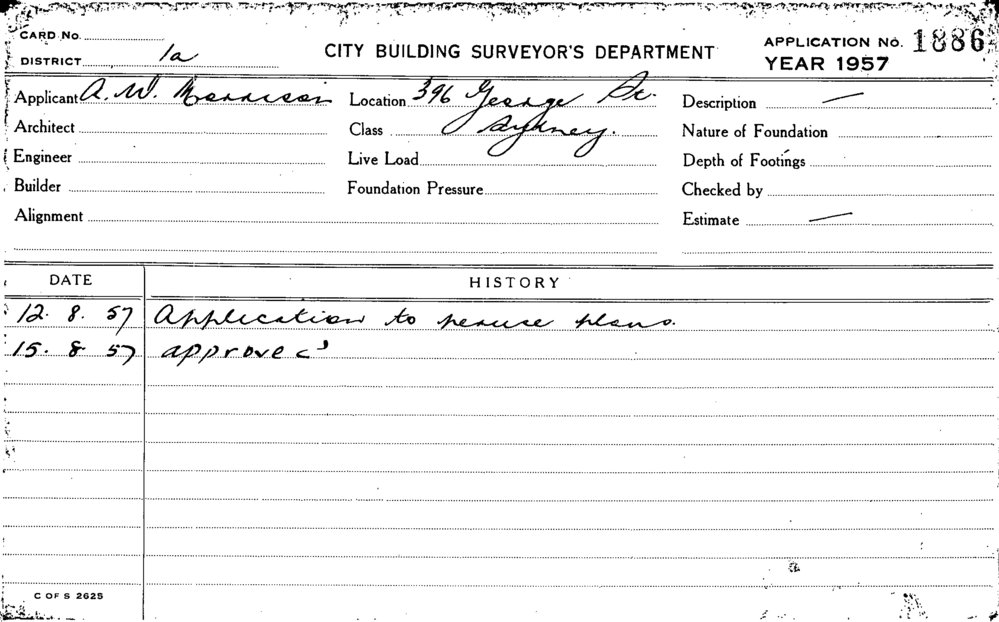 CARD No.
CITY BUILDING SURVEYOR'S DEPARTMENT
APPLICATION No. 1886
DISTRICT 1a
YEAR 1957
Applicant A. W. Morrison Location 396 George St. Description —
Architect Class Sydney. Nature of Foundation
Engineer Live Load Depth of Footings
Builder Foundation Pressure Checked by
Alignment Estimate —
DATE HISTORY
12. 8. 57 Application to peruse plans.
15. 8. 57 approved
C OF S 2625